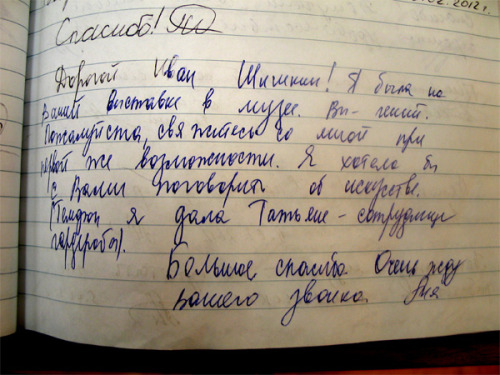 02.2012 г.
Спасибо!
Дорогой Иван Шишкин! Я была на
Вашей выставке в музее. Вы - гений.
Пожалуйста, свяжитесь со мной при
первой же возможности. Я хотела бы
с Вами поговорить об искустве.
(Телефон я дала Татьяне - сотруднице
гардероба).
Большое спасибо. Очень жду
вашего звонка.